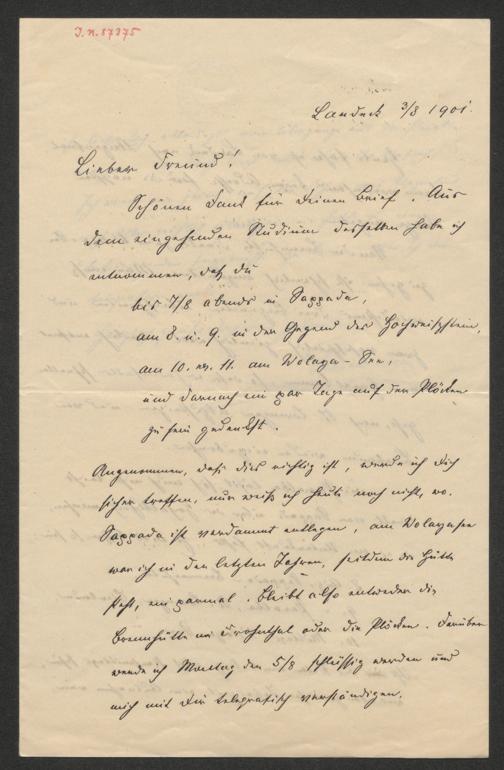 I.N. 87375
Landeck 3/8 1901.
Lieber Freund!
Schönen Dank für Deinen Brief. Aus
dem eingehenden Studium desselben habe ich
entnommen, daß Du
bis 7/8 abends in Sappada,
am 8. u. 9. in der Gegend des Hochweißstein,
am 10. 11. am Wolaya-See,
und darnach ein par Tage auf der Plöcken
zu sein gedenkst.
Angenommen, daß dies richtig ist, werde ich Dich
sicher treffen, nur weiß ich heute noch nicht, wo.
Sappada ist verdammt entlegen, am Wolayasee
war ich in den letzten Jahren, seitdem die Hütte
steht, ein parmal. Bleibt also entweder die
hütte im thal oder die Plöcken. Darüber
werde ich Montag den 5/8 schlüssig werden und
mich mit Dir telegrafisch verständigen.